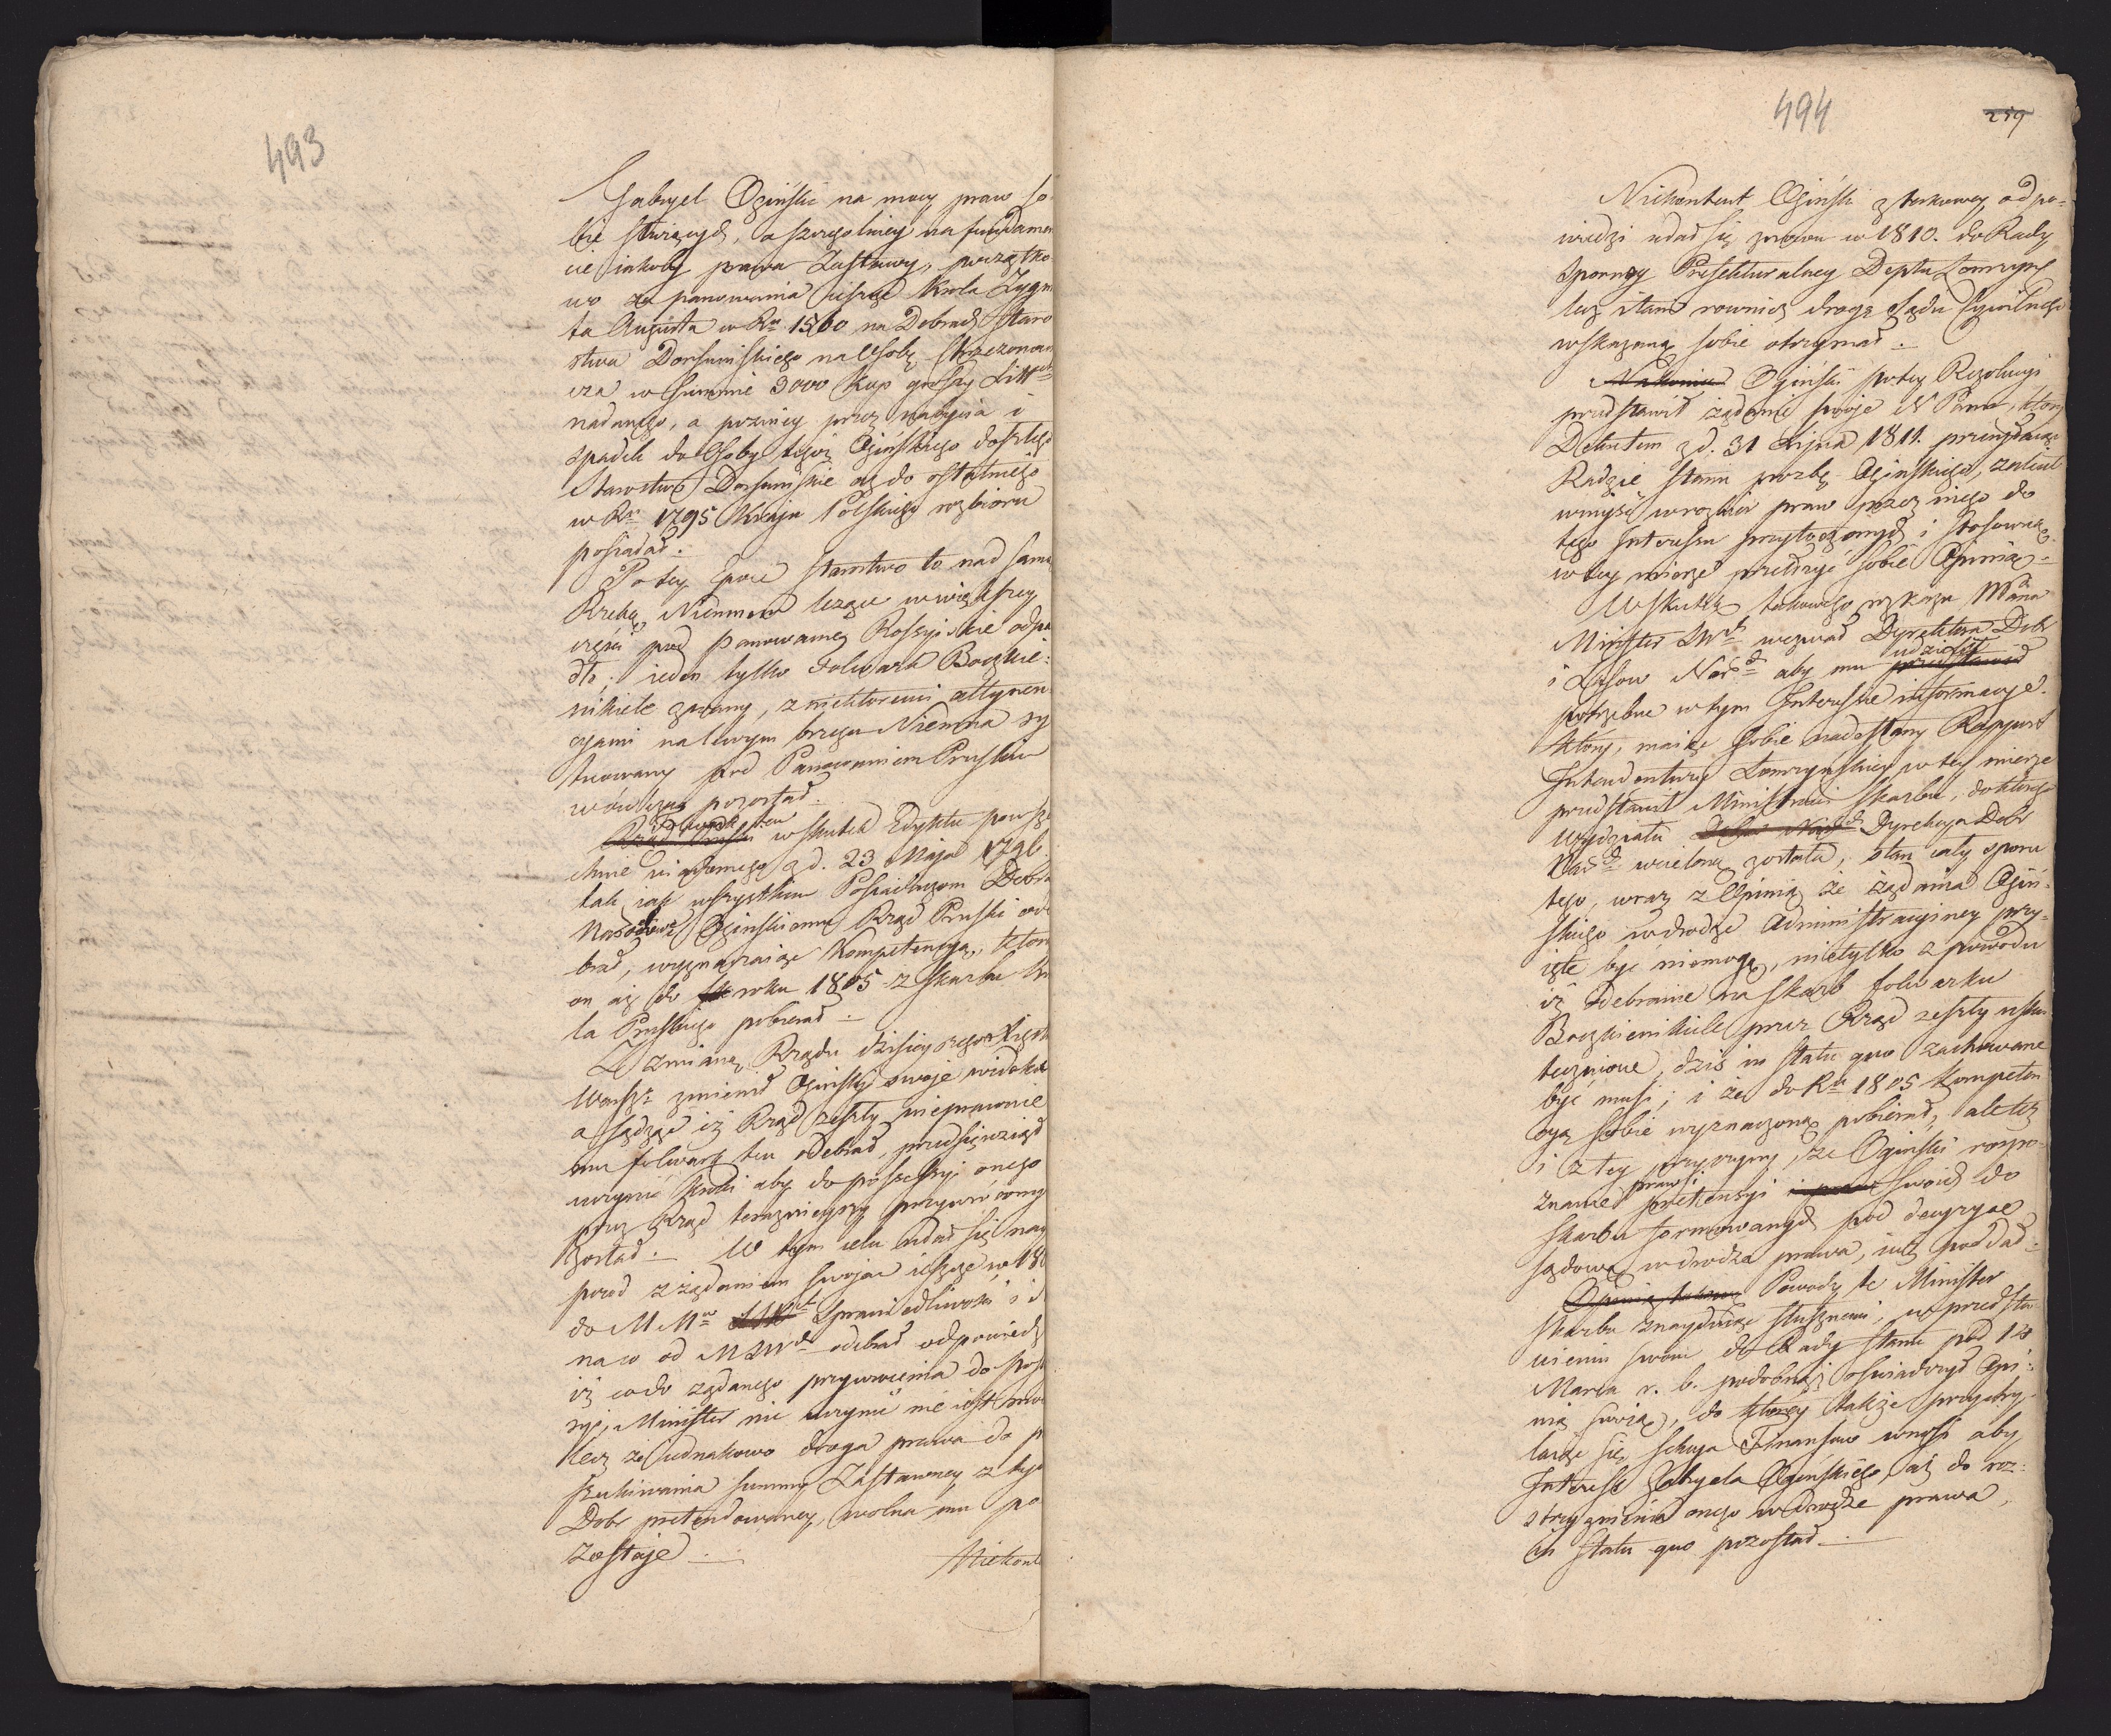 493
Gabryel Oginski na mocy praw so
bie służących, a szczególniey na fundamen
cie iakoby prawa Zastawy, początko
wo za panowania ieszcze Krola Zygm
ta Augusta w Rku 1560 na Dobrach Staro
stwa Dorsuniskiego na Osobę
cza w Summie 3000 Kop groszy Litt
nadanego, a pozniey przez nabycia i
spadek do Osoby tegoż Oginskiego doszłego
Starostwo Dorsuniskie aż do ostatniego
w Rku 1795 Kraju Polskiego rozbioru
posiadał.
Po tey Epoce Starostwo to nad samą
Rzeką Niemnem leżące w większey
części pod panowanie Rossyiskie odpa
dło; ieden tylko Folwark Boczkie-
nikiele zwany, z niektoremi attynen
cyami na lewym brzegu Niemna sy
tuowany pod Panowaniem Pruskim
wówczas pozostał.
Folwark ten
Rząd Pruski w skutek Edyktu powsze
chnie wiadomego z d. 23 Maja 1796
tak iak wszystkim Possessorom Dobr
Narodowych Oginskiemu Rząd Pruski ode
brał, wyznaczaiąc Kompetencyą, ktorą
on aż do roku 1805 z Skarbu Kró
la Pruskiego pobierał.
Z zmianą Rządu dzisieyszego Xięstwa
Warszo zmienił Oginski swoje widoki
a sądząc iż Rząd zeszły nieprawnie
mu folwark ten odebrał, przedsięwziął
uczynić kroki aby do possessyi onego
przez Rząd teraznieyszy przywrócony
został. — W tym celu udał się nay
przod z żądaniem swojem ieszcze w 180
do M Mra Sprawiedliwości i
na co od M SWch odebrał odpowiedź
iż co do żądanego przywrócenia do pos
syi, Minister nic uczynić nie iest mocen
lecz że iednakowo droga prawa do p
szukiwania summy Zastawney z tych
Dobr pretendowaney, wolna mu po
zostaje.
Niekont
494
259
Niekontent Oginski z takowey odpo-
wiedzi udał się znowu w 1810. do Rady
Sporney Prefekturalney Deptu Łomżyns
lecz i tam rownież drogę Sądu Cywilnego
wskazaną sobie otrzymał.
Nakoniec Oginski po tey Rezolucyi
przedstawił żądanie swoje N Panu, ktory
Dekretem z d. 31 1811. przesyłaiąc
Radzie Stanu prozbę Oginskiego, zalecił
wniyść w rozbior praw przez niego do
tego Interessu przytoczonych i stosowną
w tey mierze przełożyć sobie Opinią.
W skutek takowego rozkazu
Minister SWch wezwał Dyrektora Dobr
udzielił
i Lasow Nardch aby mu przedstawił
potrzebne w tym Interessie informacye.
ktory, maiąc sobie nadesłany Rapport
Intendentury Łomżynskiey w tey mierze
przedstawił Ministrowi Skarbu, do ktorego
wydziału Dobr Nardch Dyrekcya Dobr
Nardch wcieloną została, stan cały sporu
tego, wraz z Opinią że żądania Ogin-
skiego w drodze administracyiney przy-
ięte być niemogą, nietylko z powodu
iż odebranie na skarb folwarku
Boczkienikiele przez Rząd zeszły usku
tecznione, dziś in statu quo zachowane
być musi; i że do Rku 1805 kompeten
cyą sobie wyznaczoną pobierał, ale też
i z tey przyczyny, że Oginski rozpo-
praw i
znanie pretensyi i praw swoich do
Skarbu formowanych pod decyzye
sądową w drodze prawa, iuż poddał.
Opinią takową Powody te Minister
Skarbu znayduiąc słusznemi, w przedsta-
wieniu swoim do Rady Stanu pod 14
Marca r. b. podobnąż oświadczył Opi-
nią swoią, do ktorey także przychy-
laiąc się, Sekcya Finansow wnosi aby
Interess Gabryela Oginskiego, aż do roz-
strzygnienia onego w drodze prawa,
in statu quo pozostał.